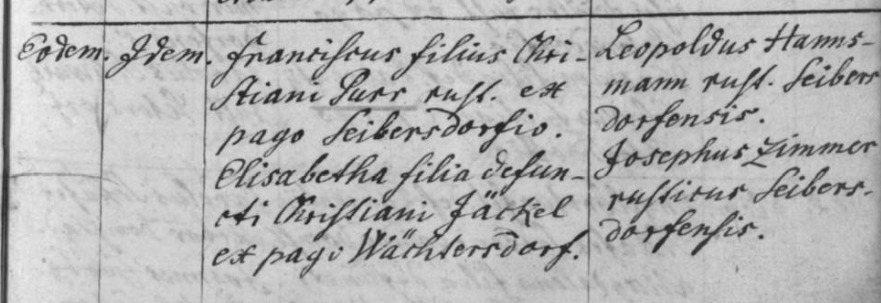 Eodem. Idem. Franciscus filius Chri-
stiani Purr rust. ex
pago Seibersdorfio.
Elisabetha filia defun-
cti Christiani Jäckel
ex pago Wächtersdorf.
Leopoldus Hanns-
mann rust. Seibers
dorfensis.
Josephus Zimmer
rusticus Seibers-
dorfensis.